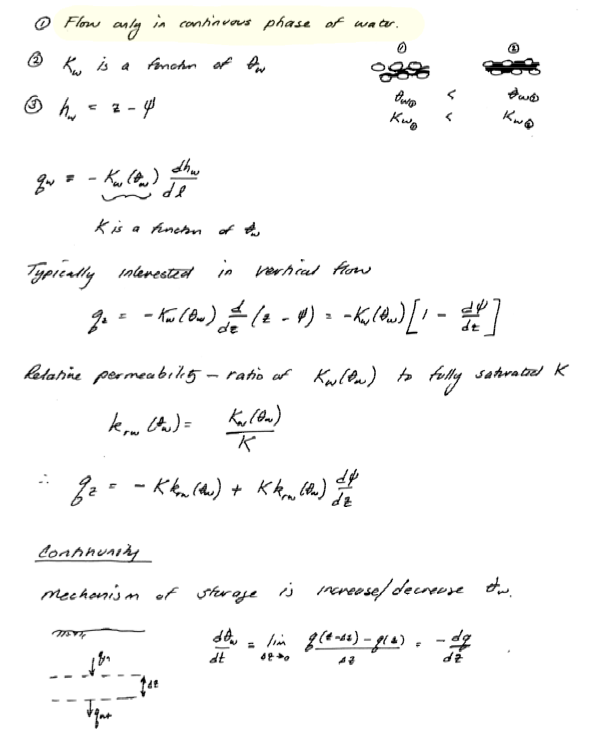 ① Flow only in continuous phase of water.
② Kw is a function of θw
③ hw = z - ψ
① ②
θw① < θw②
Kw① < Kw②
qw = - Kw(θw) dhw/dl
K is a function of θw
Typically interested in vertical flow
qz = - Kw(θw) d/dz (z - ψ) = - Kw(θw) [1 - dψ/dz]
Relative permeability – ratio of Kw(θw) to fully saturated K
krw(θw) = Kw(θw)/K
∴ qz = - K krw(θw) + K krw(θw) dψ/dz
Continuity
Mechanism of storage is increase/decrease θw.
dθw/dt = lim Δz→0 q(z-Δz) - q(z) / Δz = - dq/dz
qin
dz
qout